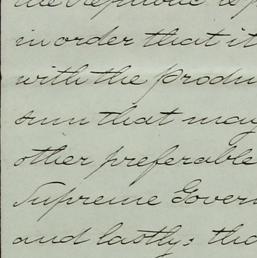 the Republic is p
in order that it
with the produ
sum that may
other preferable
Supreme Govern
and lastly: tha